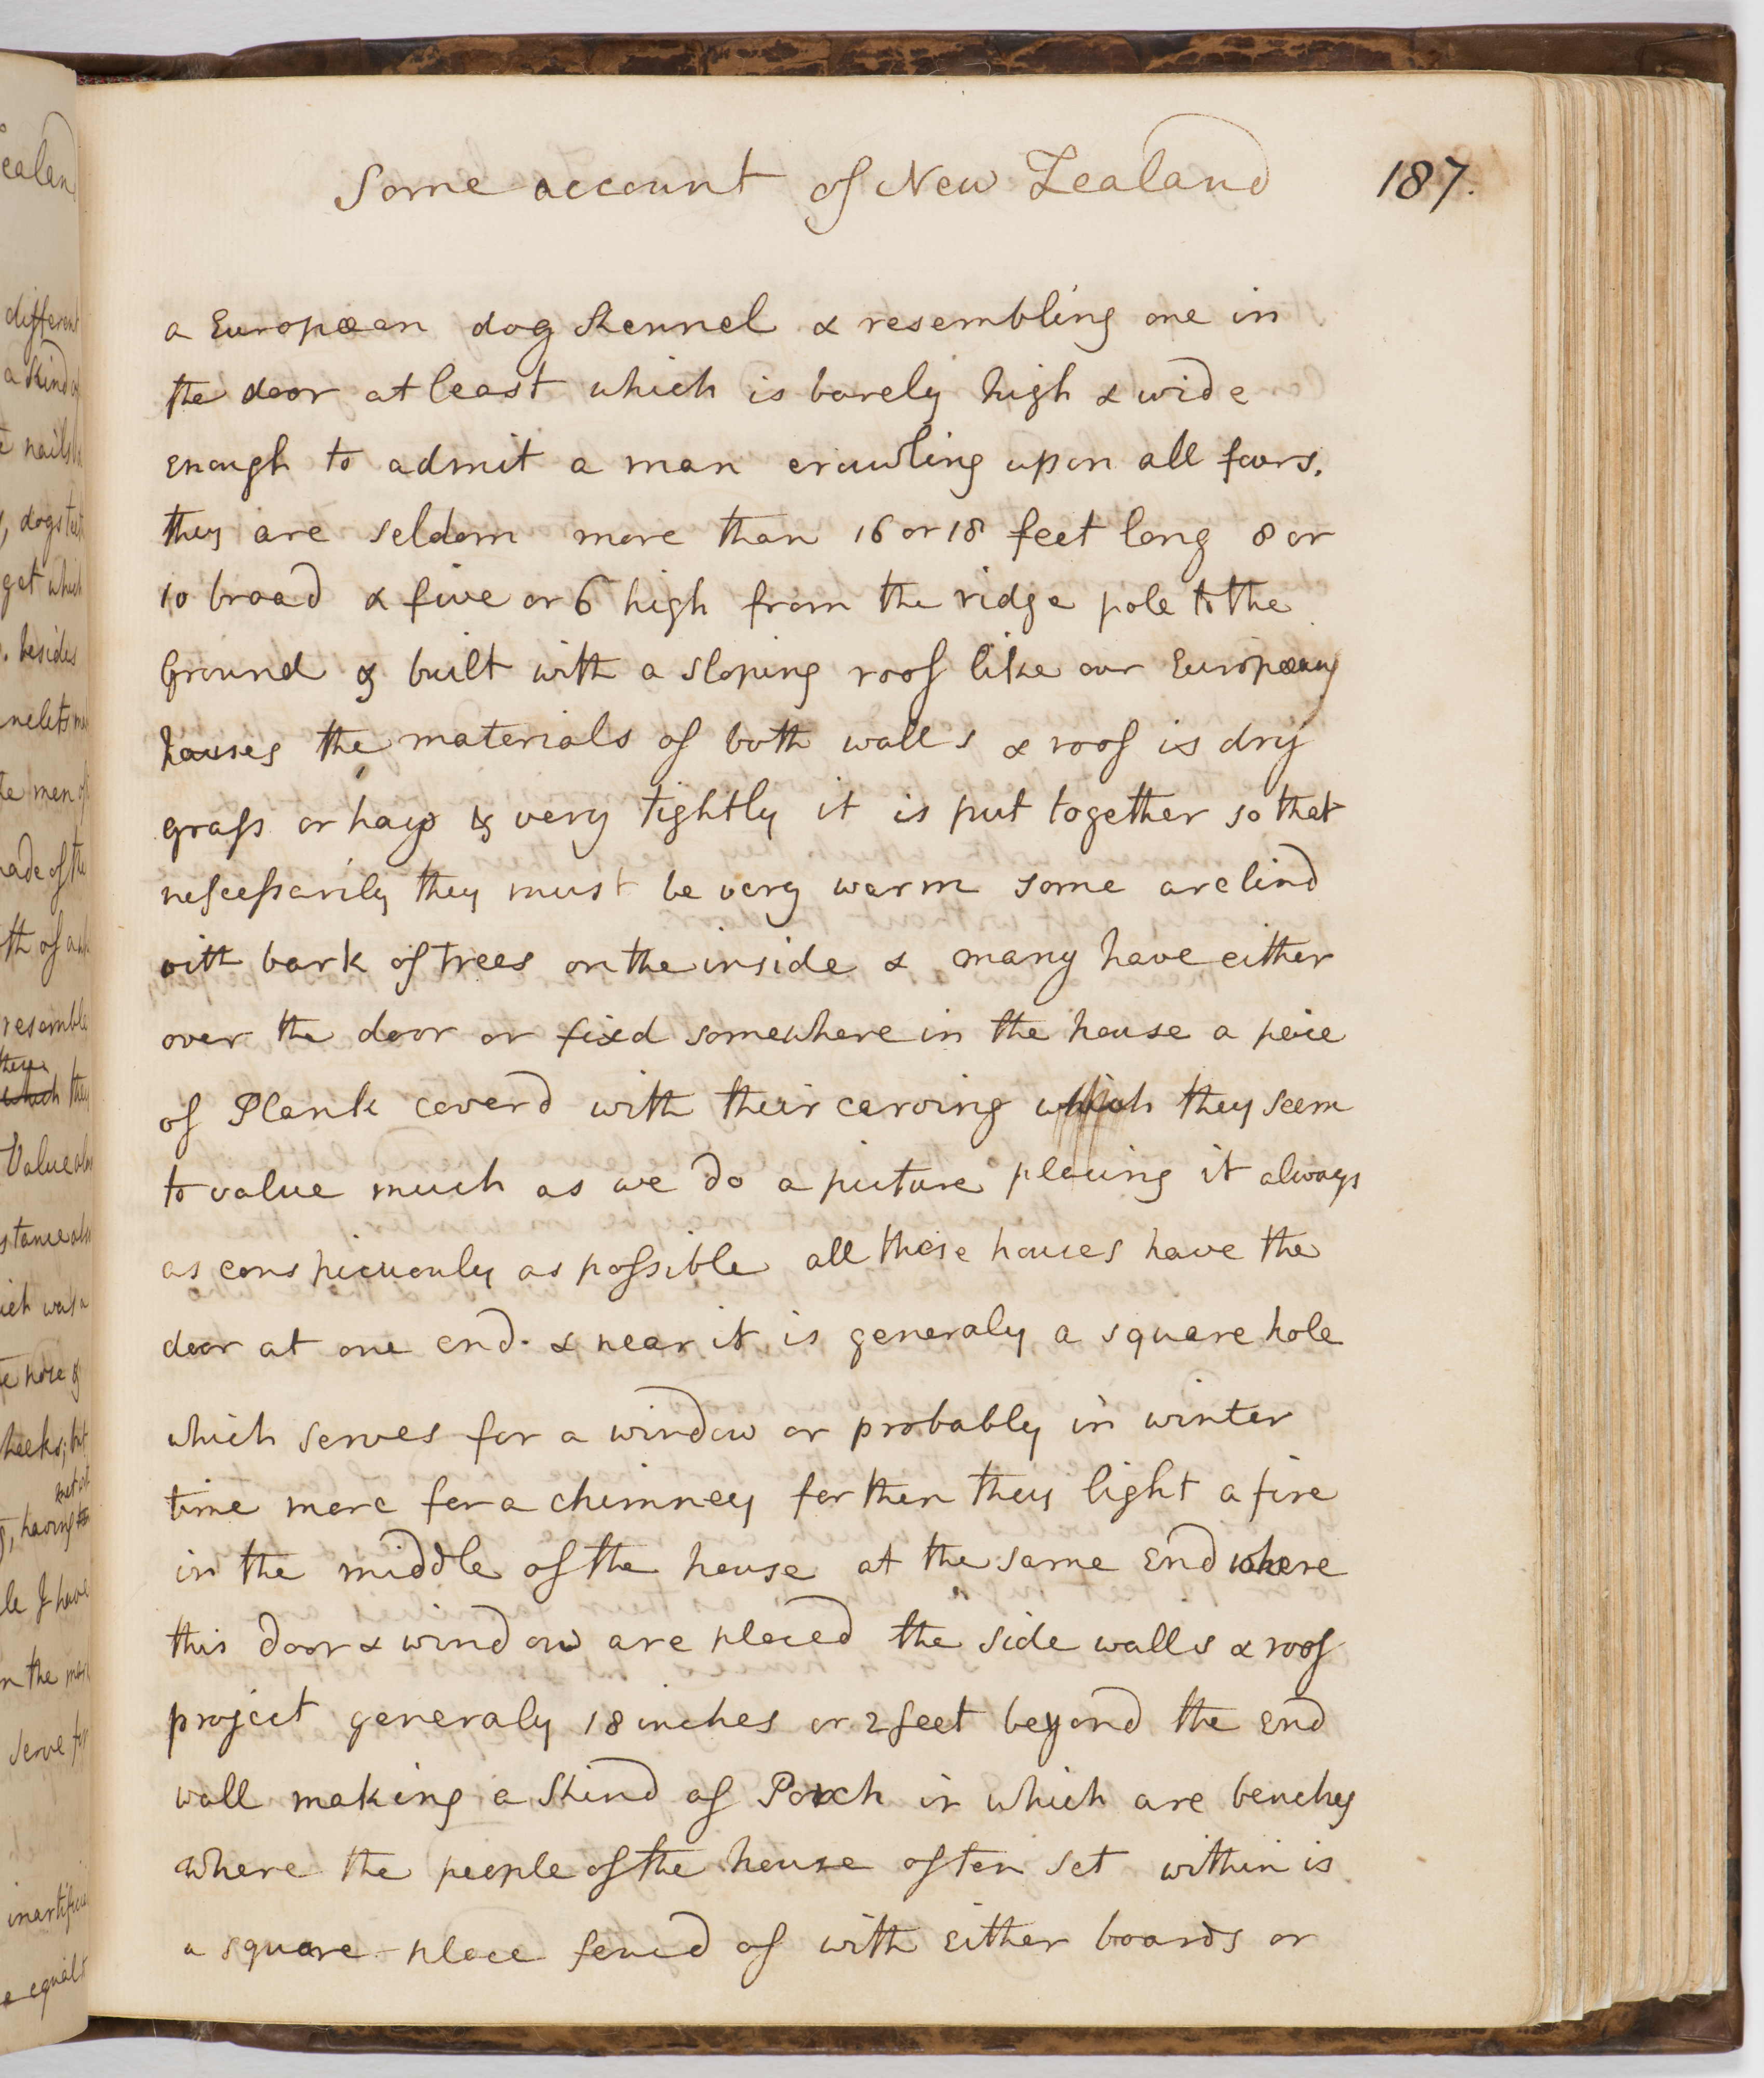 Some account of New Zealand 187.
a Europæan dog Kennel & resembling one in
the door at least which is barely high & wide
enough to admit a man crawling upon all fours.
they are seldom more than 16 or 18 feet long 8 or
10 broad & five or 6 high from the ridge pole to the
Ground & built with a sloping roof like our Europæan
houses the materials of both walls & roof is dry
grass or hay & very tightly it is put together so that
nescessarily they must be very warm some are lind
with bark of trees on the inside & many have either
over the door or fixd somewhere in the house a peice
of Plank coverd with their carving which they seem
to value much as we do a picture placing it always
as conspicuously as possible all these houses have the
door at one end. & near it is generaly a square hole
which serves for a window or probably in winter
time more for a chimney for then they light a fire
in the middle of the house at the same End where
this door & window are placed the side walls & roof
project generaly 18 inches or 2 feet beyond the End
wall making a Kind of Porch in which are benches
where the people of the house often set within is
a square place fencd of with either boards or
different
a Kind of
nails
dogs
get which
besides
men of
made of the
resemble
they
which they
Value
which was a
having
I have
in the
serve for
equal